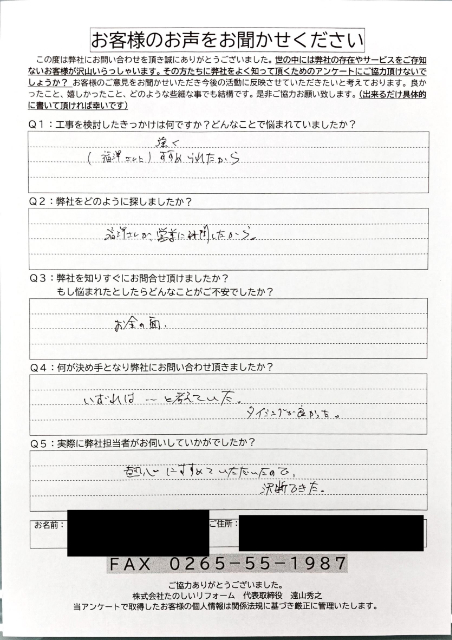 お客様のお声をお聞かせください
この度は弊社にお問い合わせを頂き誠にありがとうございました。世の中には弊社の存在やサービスをご存知
ないお客様が沢山いらっしゃいます。その方たちに弊社をよく知って頂くためのアンケートにご協力頂けないで
しょうか？ お客様のご意見をお聞かせいただき今後の活動に反映させていただきたいと考えております。良か
ったこと、嬉しかったこと、どのような些細な事でも結構です。是非ご協力お願い致します。（出来るだけ具体的
に書いて頂ければ幸いです）
Ｑ１：工事を検討したきっかけは何ですか？どんなことで悩まれていましたか？
強く
（福澤さんと）すすめられたから
Ｑ２：弊社をどのように探しましたか？
福澤さんが、営業に訪問したから。
Ｑ３：弊社を知りすぐにお問合せ頂けましたか？
もし悩まれたとしたらどんなことがご不安でしたか？
お金の面．
Ｑ４：何が決め手となり弊社にお問い合わせ頂きましたか？
いずれは … と考えていた。
タイミングが良かった。
Ｑ５：実際に弊社担当者がお伺いしていかがでしたか？
熱心にすすめていただいたので、
決断できた。
お名前：
ご住所：
FAX 0265-55-1987
ご協力ありがとうございました。
株式会社たのしいリフォーム 代表取締役 遠山秀之
当アンケートで取得したお客様の個人情報は関係法規に基づき厳正に管理いたします。